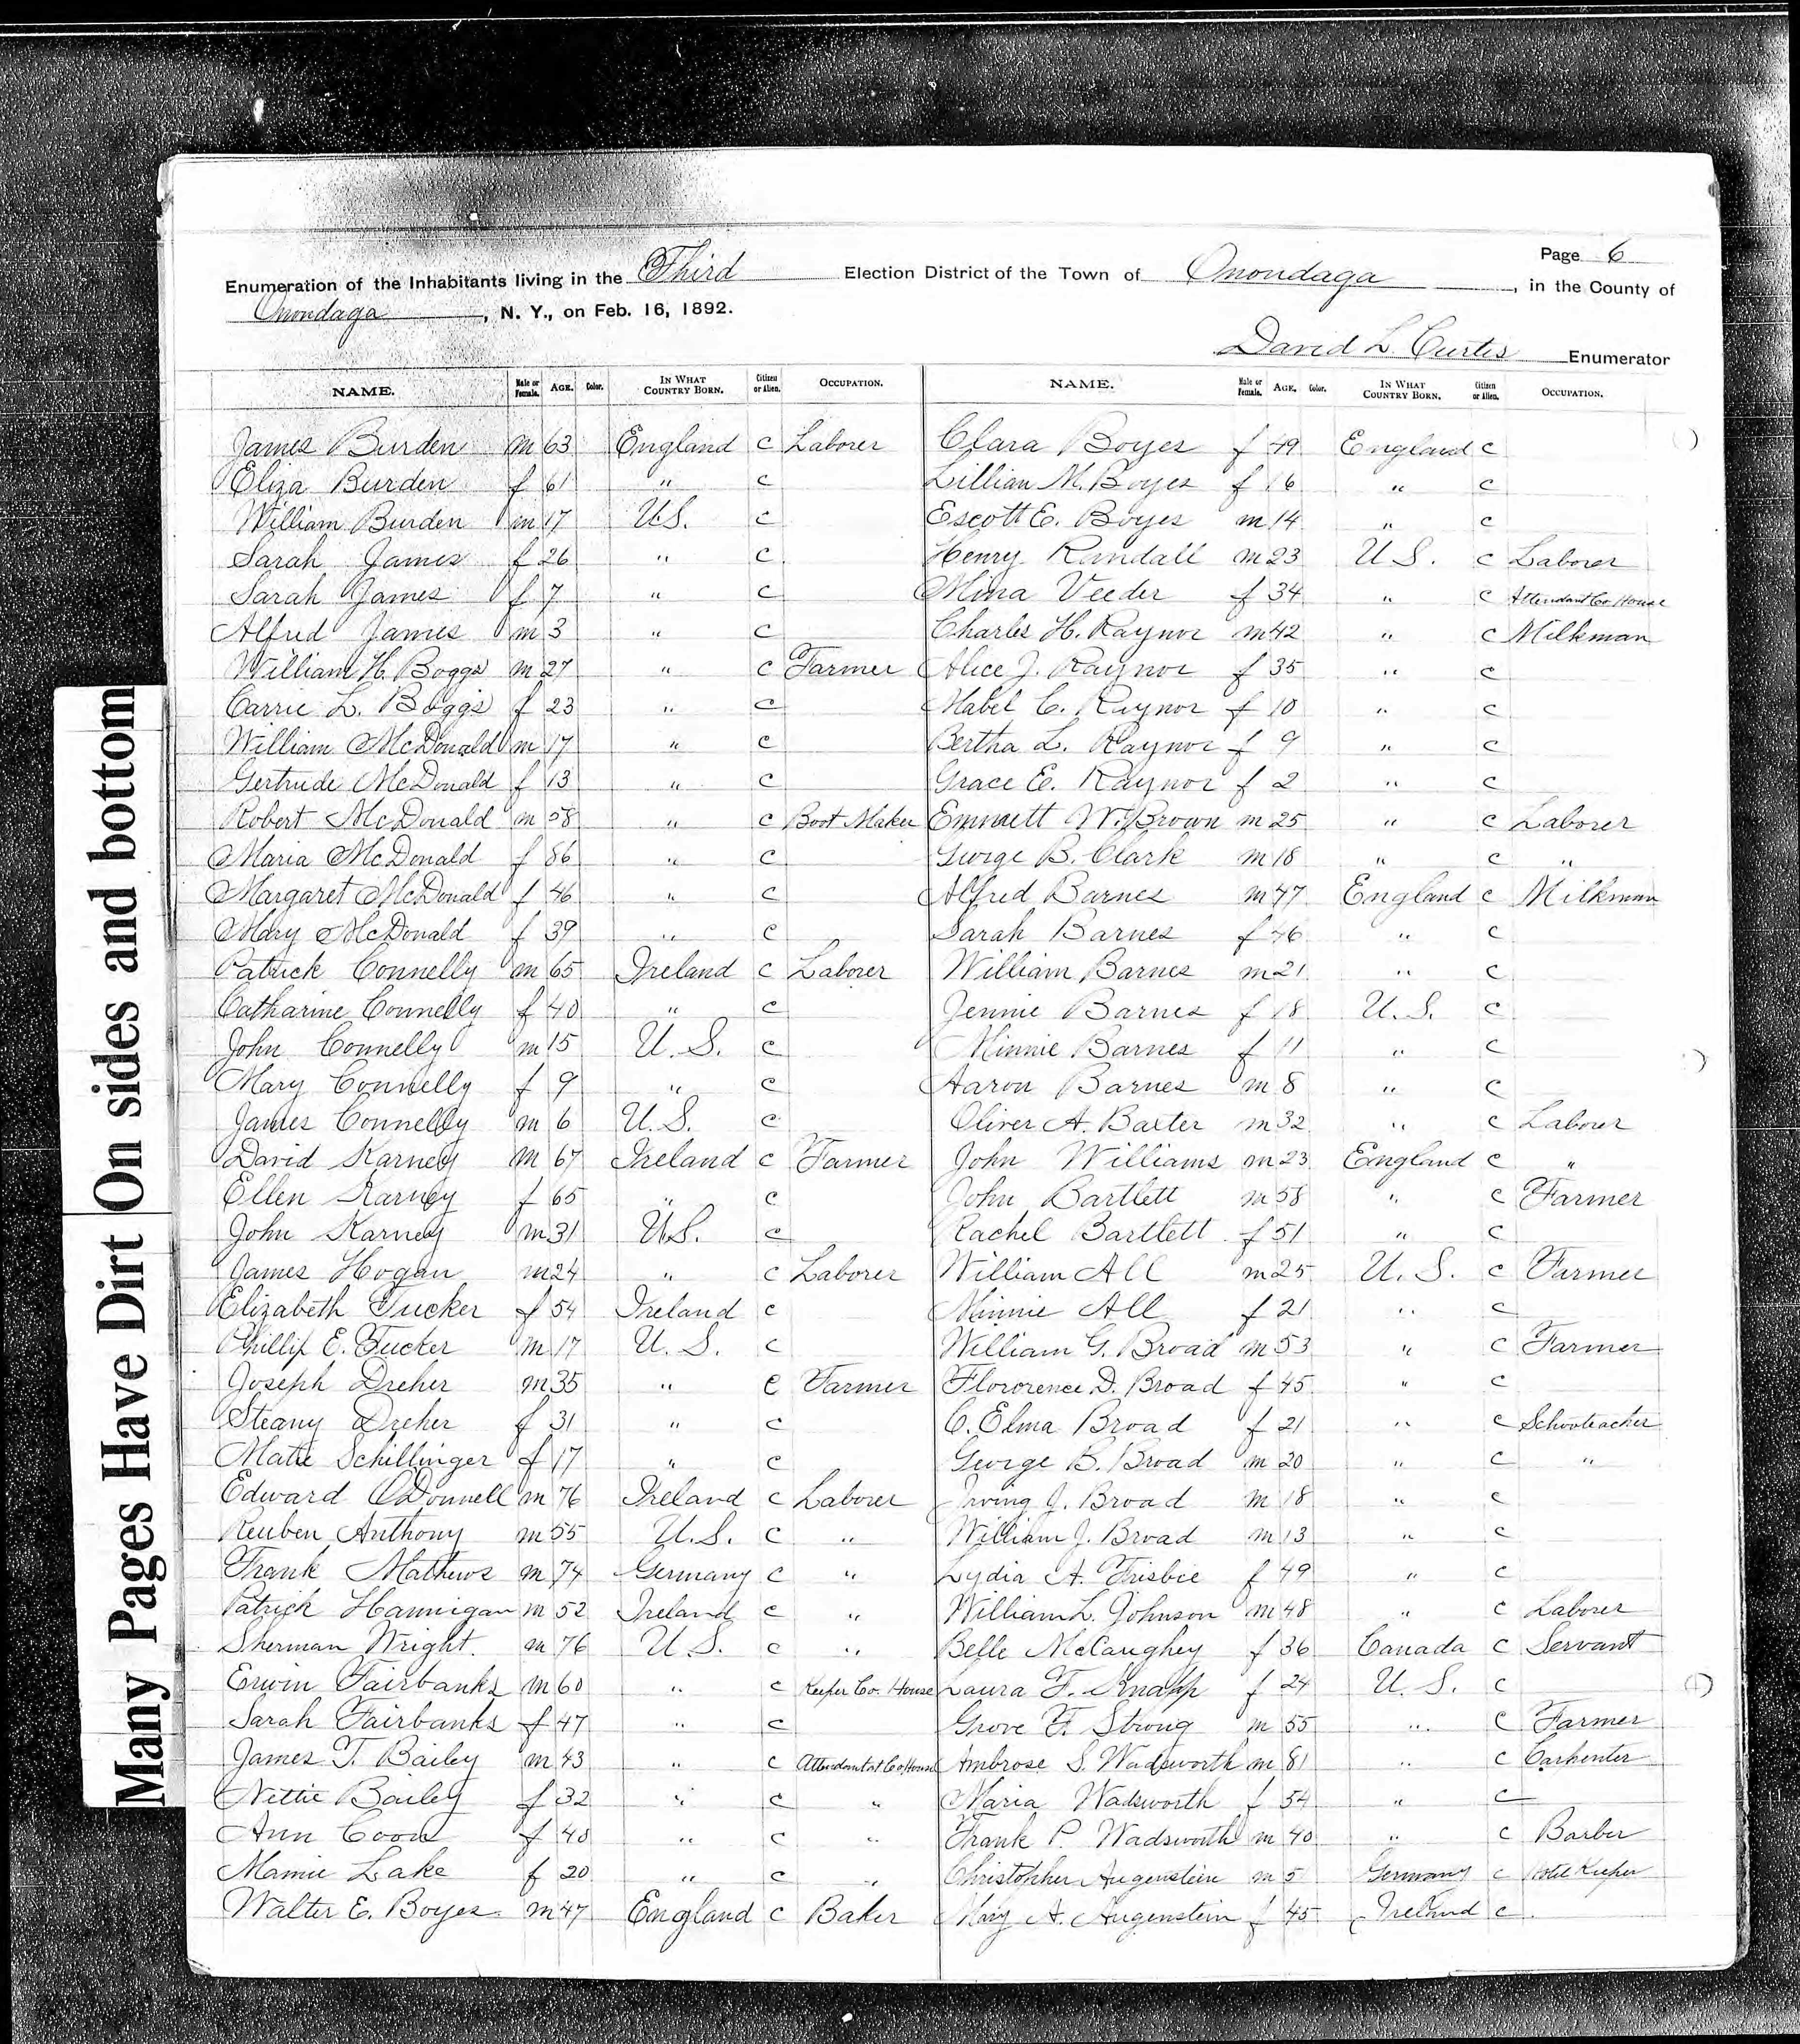 Page 6
Enumeration of the Inhabitants living in the Third Election District of the Town of Onondaga, in the County of
Onondaga, N. Y., on Feb. 16, 1892.
David L Curtis Enumerator
NAME. Male or Female. AGE. Color. IN WHAT COUNTRY BORN. Citizen or Alien. OCCUPATION. NAME. Male or Female. AGE. Color. IN WHAT COUNTRY BORN. Citizen or Alien. OCCUPATION.
James Burden m 63 England c Laborer Clara Boyes f 49 England c
Eliza Burden f 61 " c Lillian M. Boyes f 16 " c
William Burden m 17 U.S. c Escott E. Boyes m 14 " c
Sarah James f 26 " c Henry Randall m 23 U S. c Laborer
Sarah James f 7 " c Mina Veeder f 34 " c Attendant Co House
Alfred James m 3 " c Charles H. Raynor m 42 " c Milkman
William H. Boggs m 27 " c Farmer Alice J. Raynor f 35 " c
Carrie L. Boggs f 23 " c Mabel C. Raynor f 10 " c
William McDonald m 17 " c Bertha L. Raynor f 9 " c
Gertrude McDonald f 13 " c Grace E. Raynor f 2 " c
Robert McDonald m 58 " c Boot Maker Emmett W. Brown m 25 " c Laborer
Maria McDonald f 86 " c George B. Clark m 18 " c "
Margaret McDonald f 46 " c Alfred Barnes m 47 England c Milkman
Mary McDonald f 39 " c Sarah Barnes f 46 " c
Patrick Connelly m 65 Ireland c Laborer William Barnes m 21 " c
Catharine Connelly f 40 " c Jennie Barnes f 18 U.S. c
John Connelly m 15 U.S. c Minnie Barnes f 11 " c
Mary Connelly f 9 " c Aaron Barnes m 8 " c
James Connelly m 6 U.S. c Oliver A. Baxter m 32 " c Laborer
David Karney m 67 Ireland c Farmer John Williams m 23 England c "
Ellen Karney f 65 " c John Bartlett m 58 " c Farmer
John Karney m 31 U.S. c Rachel Bartlett f 51 " c
James Hogan m 24 " c Laborer William All m 25 U.S. c Farmer
Elizabeth Tucker f 54 Ireland c Minnie All f 21 " c
Phillip E. Tucker m 17 U.S. c William G. Broad m 53 " c Farmer
Joseph Dreher m 35 " c Farmer Flororence D. Broad f 45 " c
Steany Dreher f 31 " c C. Elma Broad f 21 " c Schooteacher
Matie Schillinger f 17 " c George B. Broad m 20 " c "
Edward O'Donnell m 76 Ireland c Laborer Irving J. Broad m 18 " c
Reuben Anthony m 55 U.S. c " William J. Broad m 13 " c
Frank Mathews m 74 Germany c " Lydia A. Frisbie f 49 " c
Patrick Hannigan m 52 Ireland c " William L. Johnson m 48 " c Laborer
Sherman Wright. m 76 U.S. c " Belle McCaughey f 36 Canada c Servant
Erwin Fairbanks m 60 " c Keeper Co. House Laura F. Knapp f 24 U.S. c
Sarah Fairbanks f 47 " c Grove F. Strong m 55 " c Farmer
James T. Bailey m 43 " c Attendant at Co House Ambrose S. Wadsworth m 81 " c Carpenter
Nettie Bailey f 32 " c " Maria Wadsworth f 54 " c
Ann Coon f 48 " c " Frank P. Wadsworth m 40 " c Barber
Mamie Lake f 20 " c " Christopher Augenstein m 5 Germany c Hotel Keeper
Walter E. Boyes m 47 England c Baker Mary A. Augenstein f 45 Ireland c
Many Pages Have Dirt On sides and bottom